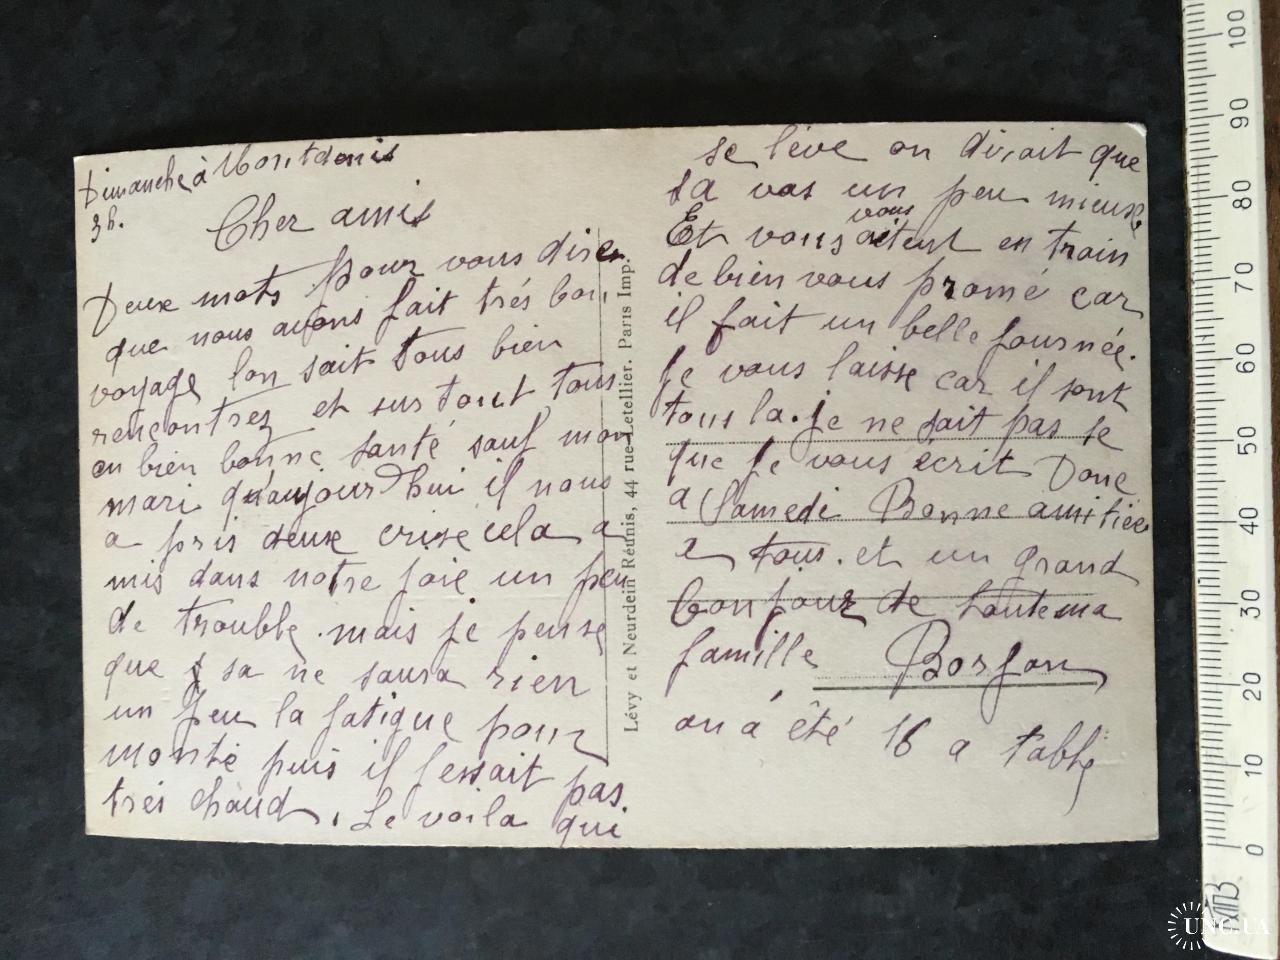 Dimanche à Montdenis
3h.
Cher amis
Deux mots pour vous dire
que nous avons fait très bon
voyage lon sait tous bien
rencontrez et surtout tous
en bien bonne santé sauf mon
mari qu'aujourdhui il nous
a pris deux crise cela a
mis dans notre joie un peu
de trouble. mais je pense
que sa ne saura rien
un peu la fatigue pour
monté puis il fessait pas
très chaud. Le voila qui
se lève on dirait que
sa vas un peu mieux.
Et vous vous etent en train
de bien vous promé car
il fait un belle journée.
Je vous laisse car il sont
tous la. je ne sait pas se
que je vous écrit Donc
a Samedi Bonne amitiée
a tous. et un grand
bonjour de toute ma
famille Borjon
on a été 16 a table
Lévy et Neurdein Réunis, 44 rue Letellier. Paris Imp.
100
90
80
70
60
50
40
30
20
10
0
UNC.UA